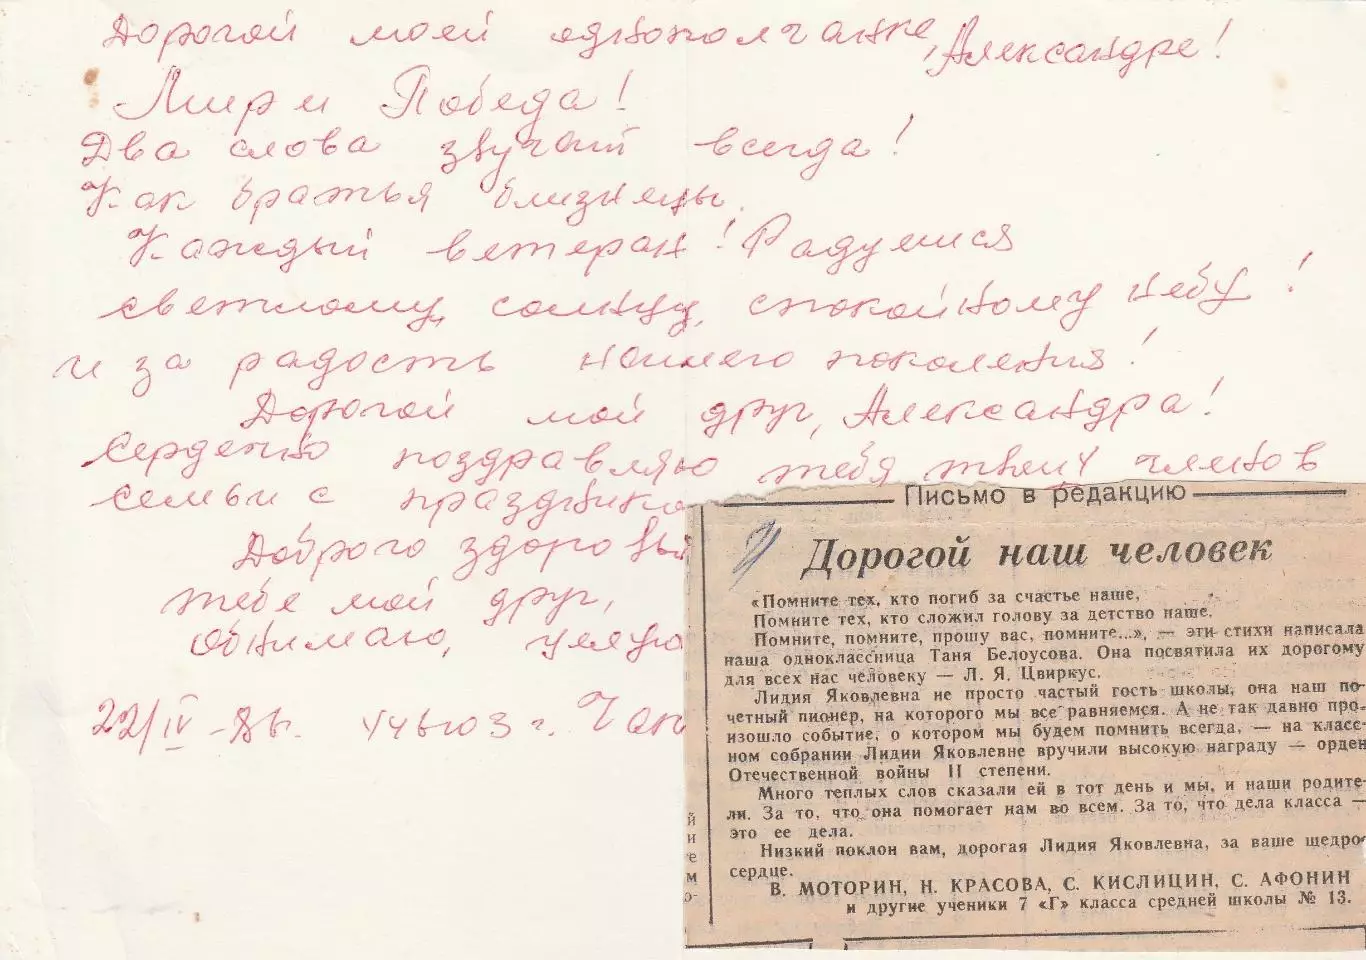 Дорогой моей однополчанке, Александре!
Мир и Победа!
Два слова звучат всегда!
Как братья близнецы.
Каждый ветеран! Радуемся
светлому солнцу, спокойному небу!
и за радость нашего поколения!
Дорогой мой друг, Александра!
Сердечно поздравляю тебя твоих членов
семьи с праздника
Доброго здоровья
тебе мой друг,
обнимаю, целую
22/IV-86г.
Письмо в редакцию
Дорогой наш человек
«Помните тех, кто погиб за счастье наше,
Помните тех, кто сложил голову за детство наше.
Помните, помните, прошу вас, помните...», — эти стихи написала
наша одноклассница Таня Белоусова. Она посвятила их дорогому
для всех нас человеку — Л. Я. Цвиркус.
Лидия Яковлевна не просто частый гость школы, она наш по-
четный пионер, на которого мы все равняемся. А не так давно про-
изошло событие, о котором мы будем помнить всегда, — на класс-
ном собрании Лидии Яковлевне вручили высокую награду — орден
Отечественной войны II степени.
Много теплых слов сказали ей в тот день и мы, и наши родите-
ли. За то, что она помогает нам во всем. За то, что дела класса —
это ее дела.
Низкий поклон вам, дорогая Лидия Яковлевна, за ваше щедро-
сердце.
В. МОТОРИН, Н. КРАСОВА, С. КИСЛИЦИН, С. АФОНИН
и другие ученики 7 «Г» класса средней школы № 13.